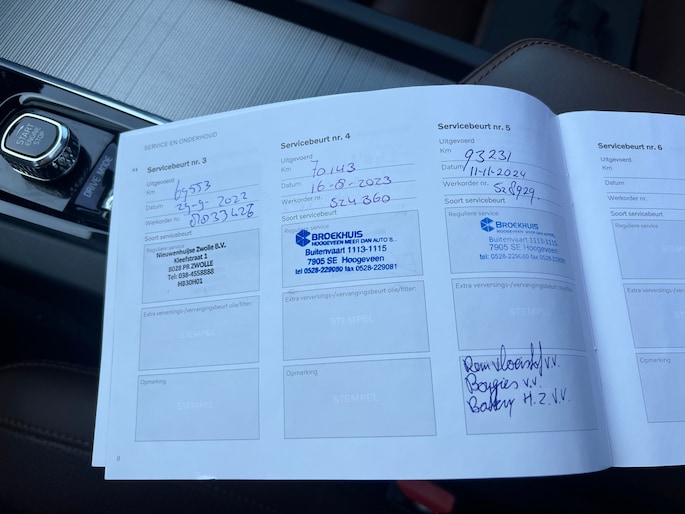 START
ENGINE
STOP
DRIVE MODE
SERVICE EN ONDERHOUD
Servicebeurt nr. 3
Uitgevoerd
Km 69553
Datum 29-9-2022
Werkorder nr.
Soort servicebeurt
Reguliere service
Nieuwenhuijse Zwolle B.V.
Kleefstraat 1
8028 PR ZWOLLE
Tel: 038-4558888
HB30H01
Extra verversings-/vervangingsbeurt olie/filter:
STEMPEL
Opmerking
STEMPEL
8
Servicebeurt nr. 4
Uitgevoerd
Km 70143
Datum 16-8-2023
Werkorder nr. 524360
Soort servicebeurt
Reguliere service
BROEKHUIS
HOOGEVEEN MEER DAN AUTO'S...
Buitenvaart 1113-1115
7905 SE Hoogeveen
tel 0528-229080 fax 0528-229081
Extra verversings-/vervangingsbeurt olie/filter:
STEMPEL
Opmerking
STEMPEL
Servicebeurt nr. 5
Uitgevoerd
Km 93231
Datum 11-11-2024
Werkorder nr. 528929.
Soort servicebeurt
Reguliere service
BROEKHUIS
Buitenvaart 1113-1115
7905 SE Hoogeveen
tel: 0528-229080 fax 0528-229081
Remvloeistof v.v.
Bougies v.v.
Battery H.Z. v.v.
Servicebeurt nr. 6
Uitgevoerd
Km
Datum
Werkorder nr.
Soort servicebeurt
Reguliere service
Extra verversings-/
Opmerking